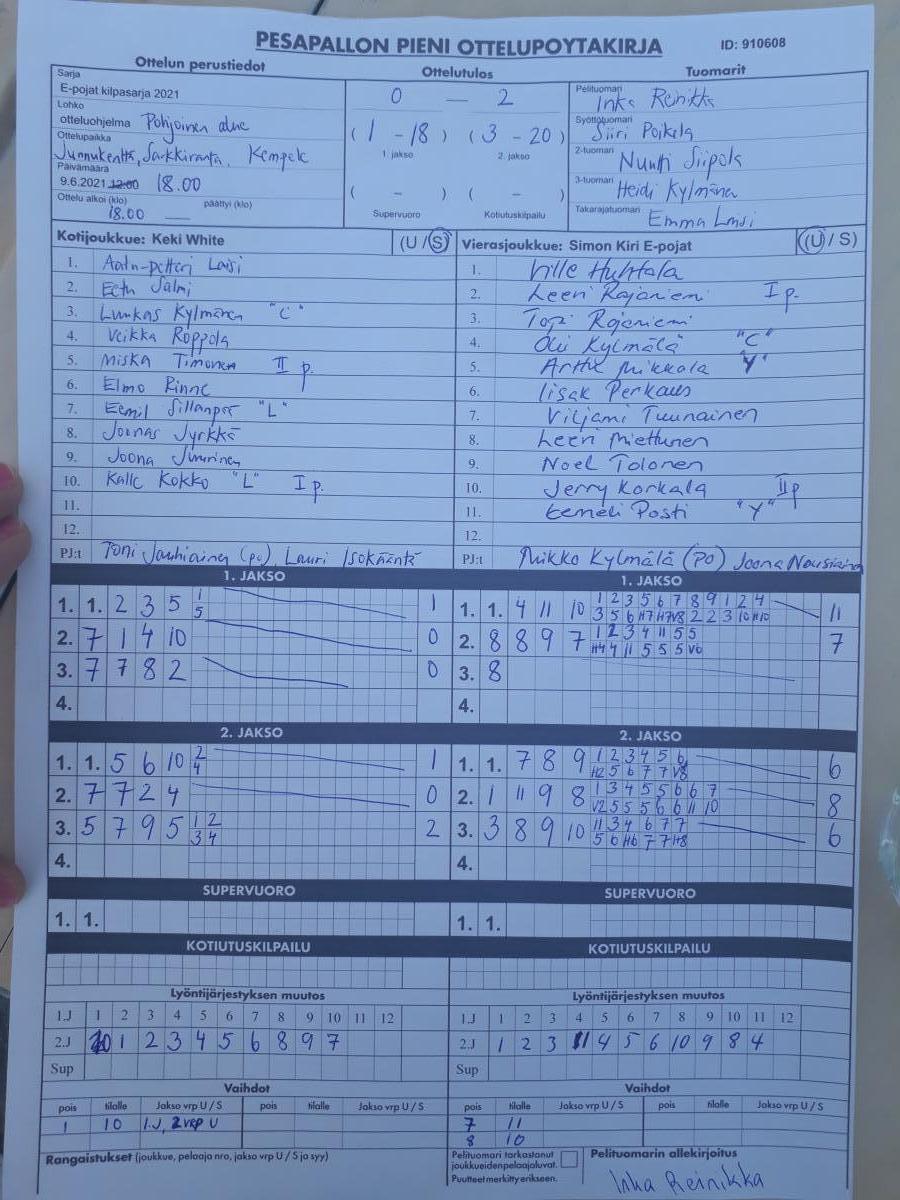 PESAPALLON PIENI OTTELUPOYTAKIRJA ID: 910608
Ottelun perustiedot Ottelutulos Tuomarit
Sarja
E-pojat kilpasarja 2021
Lohko
otteluohjelma Pohjoinen alue
Ottelupaikka
Junnukenttä, Sarkkiranta, Kempele
Päivämäärä
9.6.2021 12:00 18.00
Ottelu alkoi (klo) päättyi (klo)
18.00
0 — 2
(1 - 18) (3 - 20)
1. jakso 2. jakso
( - ) ( - )
Supervuoro Kotiutuskilpailu
Pelituomari
Inka Reinikka
Syöttötuomari
Siiri Poikela
2-tuomari
Nuutti Siipola
3-tuomari
Heidi Kylmänen
Takarajatuomari
Emma Lansi
Kotijoukkue: Keki White (U / S)
1.
2. Eetu Salmi
3. Luukas Kylmänen "C"
4. Veikka Roppola
5. Miska Timonen II p.
6. Elmo Rinne
7. Eemil Sillanpää "L"
8. Joonas Jyrkkä
9. Joona
10. Kalle Kokko "L" I p.
11.
12.
PJ:t Toni Jauhiainen (po), Lauri Isokääntä
Vierasjoukkue: Simon Kiri E-pojat (U / S)
1. Ville Huhtala
2. Leevi Rajaniemi I p.
3. Topi Rajaniemi
4. Olli Kylmälä "C"
5. Arttu Mikkala "Y"
6. Iisak Perkaus
7. Viljami Tuunainen
8. Leevi Miettunen
9. Noel Tolonen
10. Jerry Korkala II p
11. Eemeli Posti "Y"
12.
PJ:t Mikko Kylmälä (PO) Joona Nousiainen
1. JAKSO
1. 1. 2 3 5 1 1
5
2. 7 1 4 10 0
3. 7 7 8 2 0
4.
1. JAKSO
1. 1. 4 11 10 1 2 3 5 6 7 8 9 1 2 4 11
3 5 6 H7 H7 V8 2 2 3 10 H10
2. 8 8 9 7 1 2 3 4 11 5 5 7
H4 4 11 5 5 5 V6
3. 8
4.
2. JAKSO
1. 1. 5 6 10 2 1
4
2. 7 7 2 4 0
3. 5 7 9 5 1 2 2
3 4
4.
2. JAKSO
1. 1. 7 8 9 1 2 3 4 5 6 6
H2 5 6 7 7 V8
2. 1 11 9 8 1 3 4 5 5 6 6 7 8
V2 5 5 5 6 6 11 10
3. 3 8 9 10 11 3 4 6 7 7 6
5 6 H6 7 7 H8
4.
SUPERVUORO
1. 1.
SUPERVUORO
1. 1.
KOTIUTUSKILPAILU
KOTIUTUSKILPAILU
Lyöntijärjestyksen muutos
1.J 1 2 3 4 5 6 7 8 9 10 11 12
2.J 10 1 2 3 4 5 6 8 9 7
Sup
Lyöntijärjestyksen muutos
1.J 1 2 3 4 5 6 7 8 9 10 11 12
2.J 1 2 3 11 4 5 6 10 9 8 4
Sup
Vaihdot
pois tilalle Jakso vrp U / S pois tilalle Jakso vrp U / S
1 10 1.J, 2 VRP U
Vaihdot
pois tilalle Jakso vrp U / S pois tilalle Jakso vrp U / S
7 11
8 10
Rangaistukset (joukkue, pelaaja nro, jakso vrp U / S ja syy)
Pelituomari tarkastanut
joukkueidenpelaajaluvat.
Puutteet merkitty erikseen.
Pelituomarin allekirjoitus
Inka Reinikka